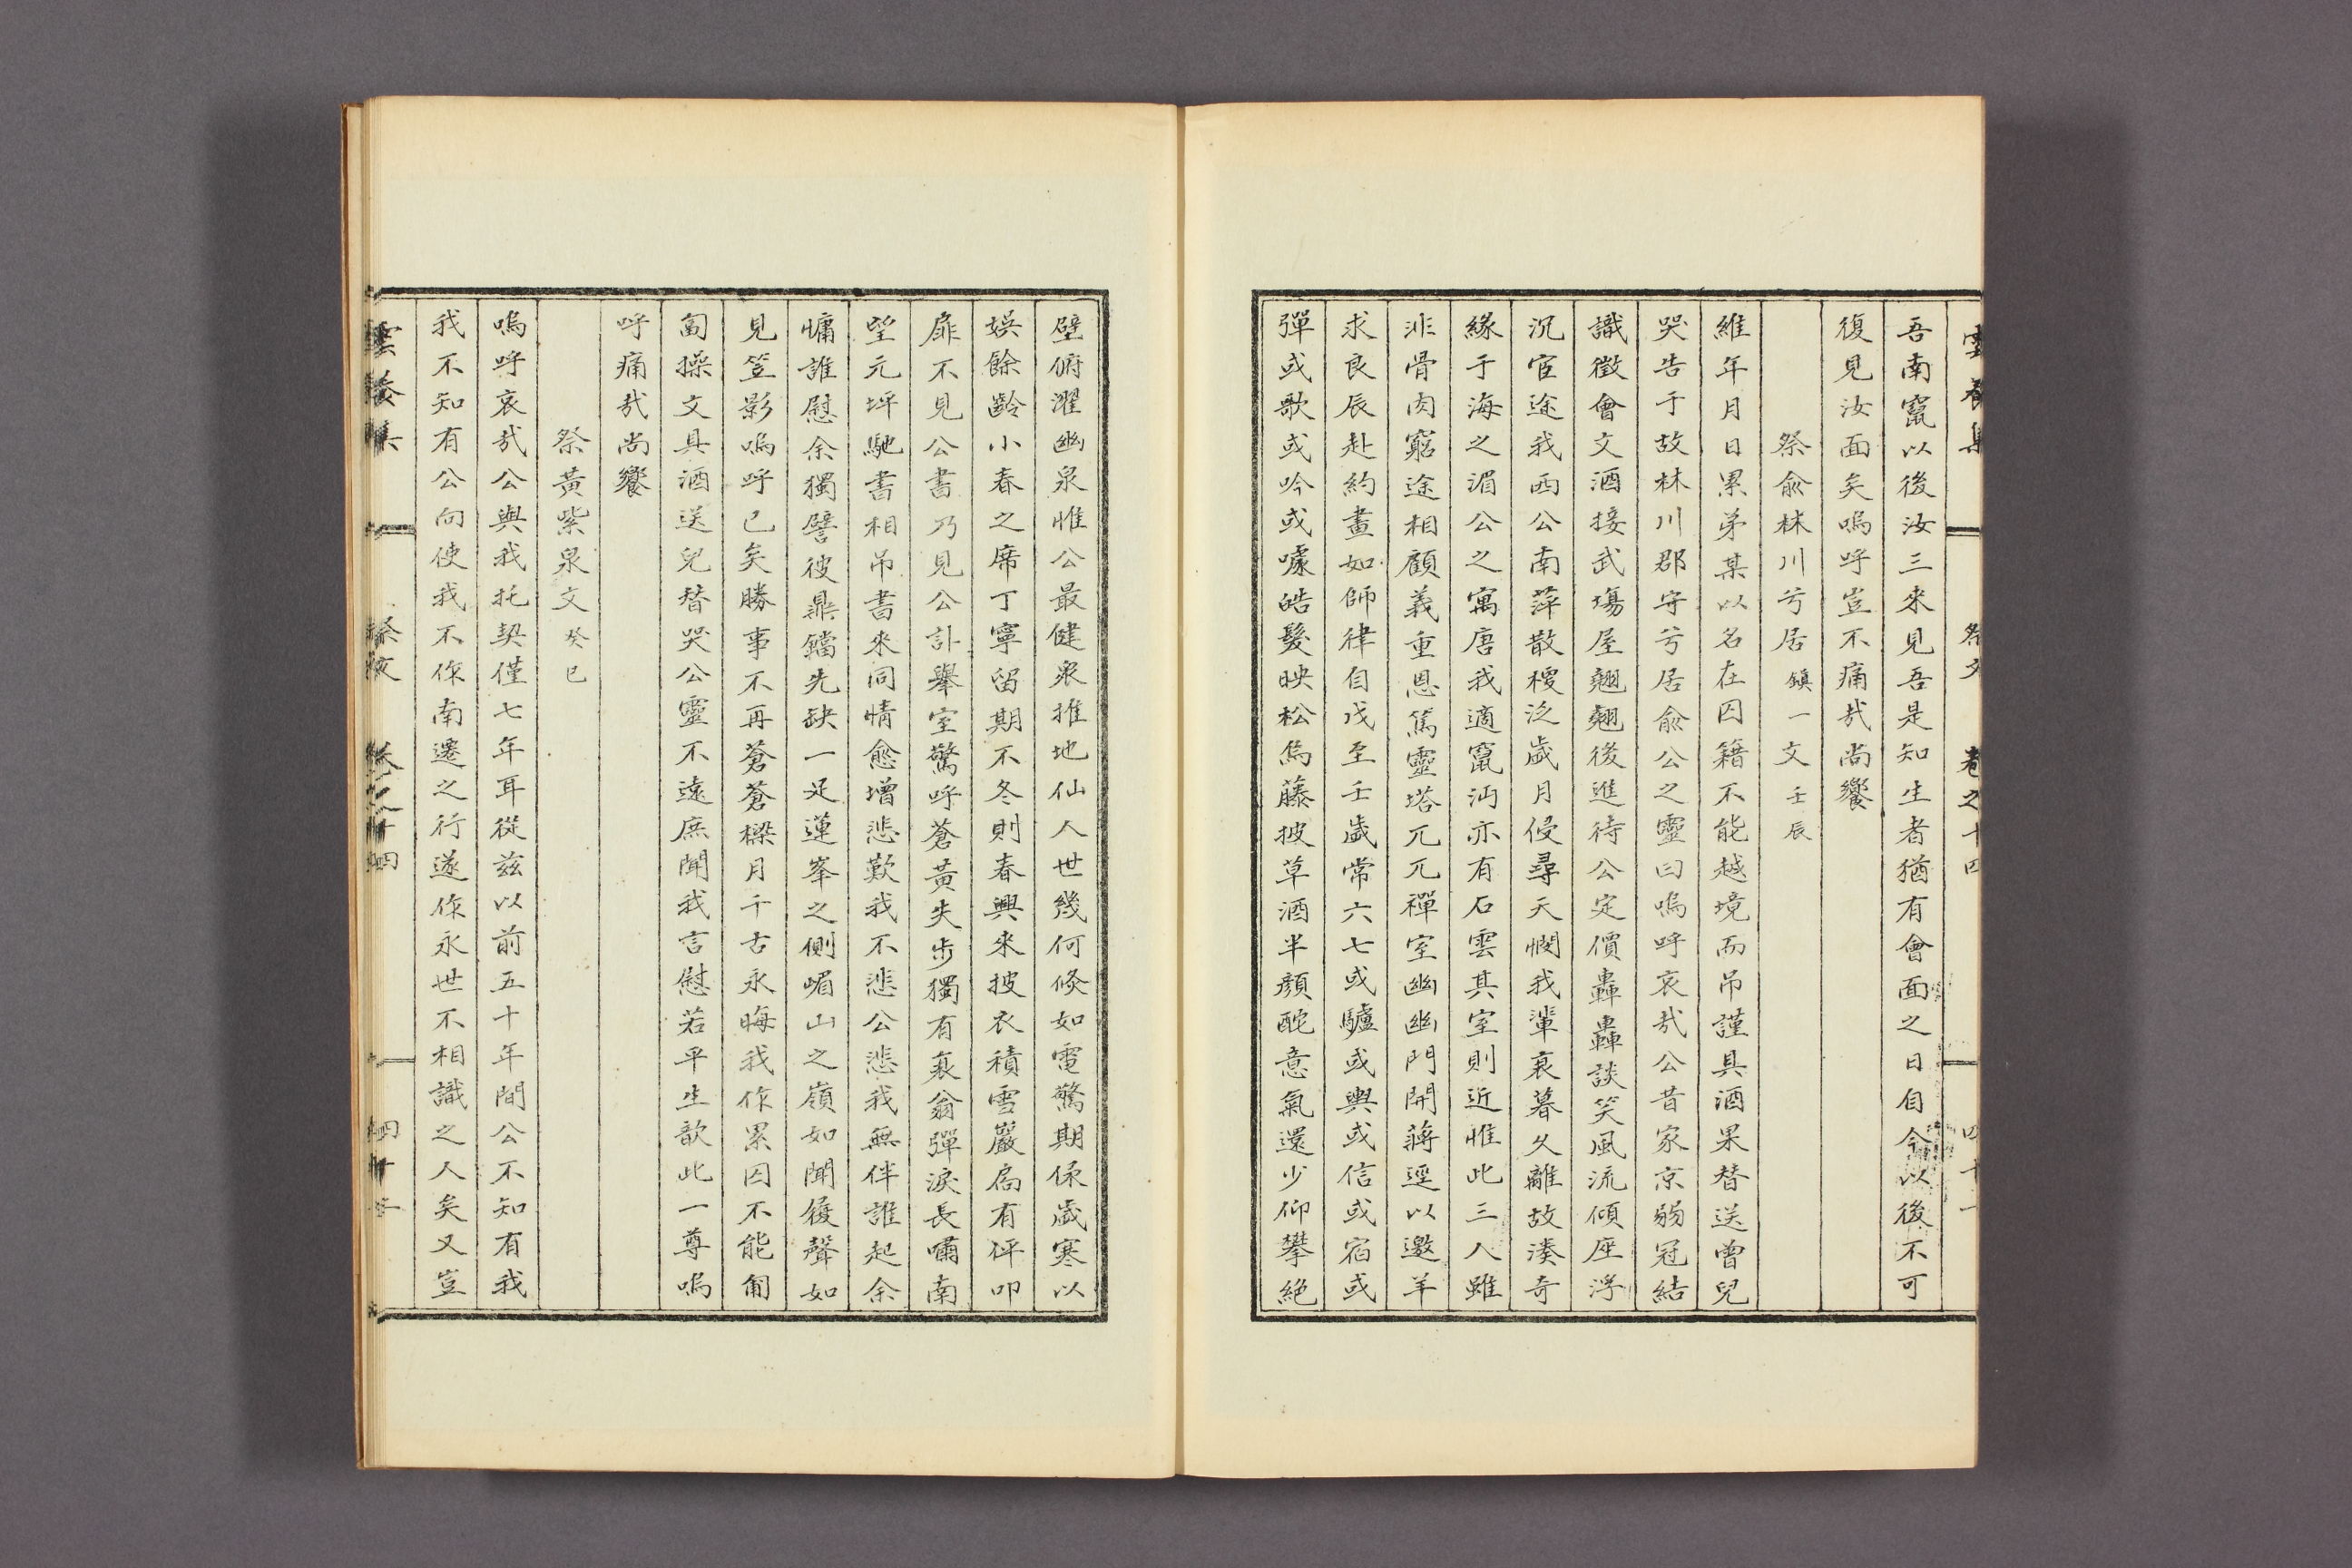 雲養集 祭文 卷之十四 四十一
吾南竄以後汝三來見吾是知生者猶有會面之日自今以後不可
復見汝面矣嗚呼豈不痛哉尚饗
祭俞林川兮居鎭一文壬辰
維年月日累弟某以名在囚籍不能越境而吊謹具酒果替送曾兒
哭告于故林川郡守兮居俞公之靈曰嗚呼哀哉公昔家京弱冠結
識徵會文酒接武塲屋翹翹後進待公定價轟轟談笑風流傾座浮
沉宦途我西公南萍散稷泛歲月侵尋天憫我輩衰暮久離故湊奇
緣于海之湄公之寓唐我適竄沔亦有石雲其室則近惟此三人雖
非骨肉窮途相顧義重恩篤靈塔兀兀禪室幽幽門開蔣逕以邀羊
求良辰赴約晝如師律自戊至壬歲常六七或驢或輿或信或宿或
彈或歌或吟或噱皓髮映松烏藤披草酒半顏酡意氣還少仰攀絶
壁俯濯幽泉惟公最健衆推地仙人世幾何倏如電驚期保歲寒以
娛餘齡小春之席丁寧留期不冬則春興來披衣積雪巖扃有伻叩
扉不見公書乃見公訃擧室驚呼蒼黃失步獨有衰翁彈淚長嘯南
望元坪馳書相吊書來同情愈增悲歎我不悲公悲我無伴誰起余
慵誰慰余獨譬彼鼎鐺先缺一足蓮峯之側嵋山之嶺如聞屐聲如
見笠影嗚呼已矣勝事不再蒼蒼樑月千古永晦我作累囚不能匍
匐操文具酒送兒替哭公靈不遠庶聞我言慰若平生歆此一尊嗚
呼痛哉尚饗
祭黃紫泉文癸巳
嗚呼哀哉公與我托契僅七年耳從玆以前五十年間公不知有我
我不知有公向使我不作南遷之行遂作永世不相識之人矣又豈
雲養集 祭文 卷之十四